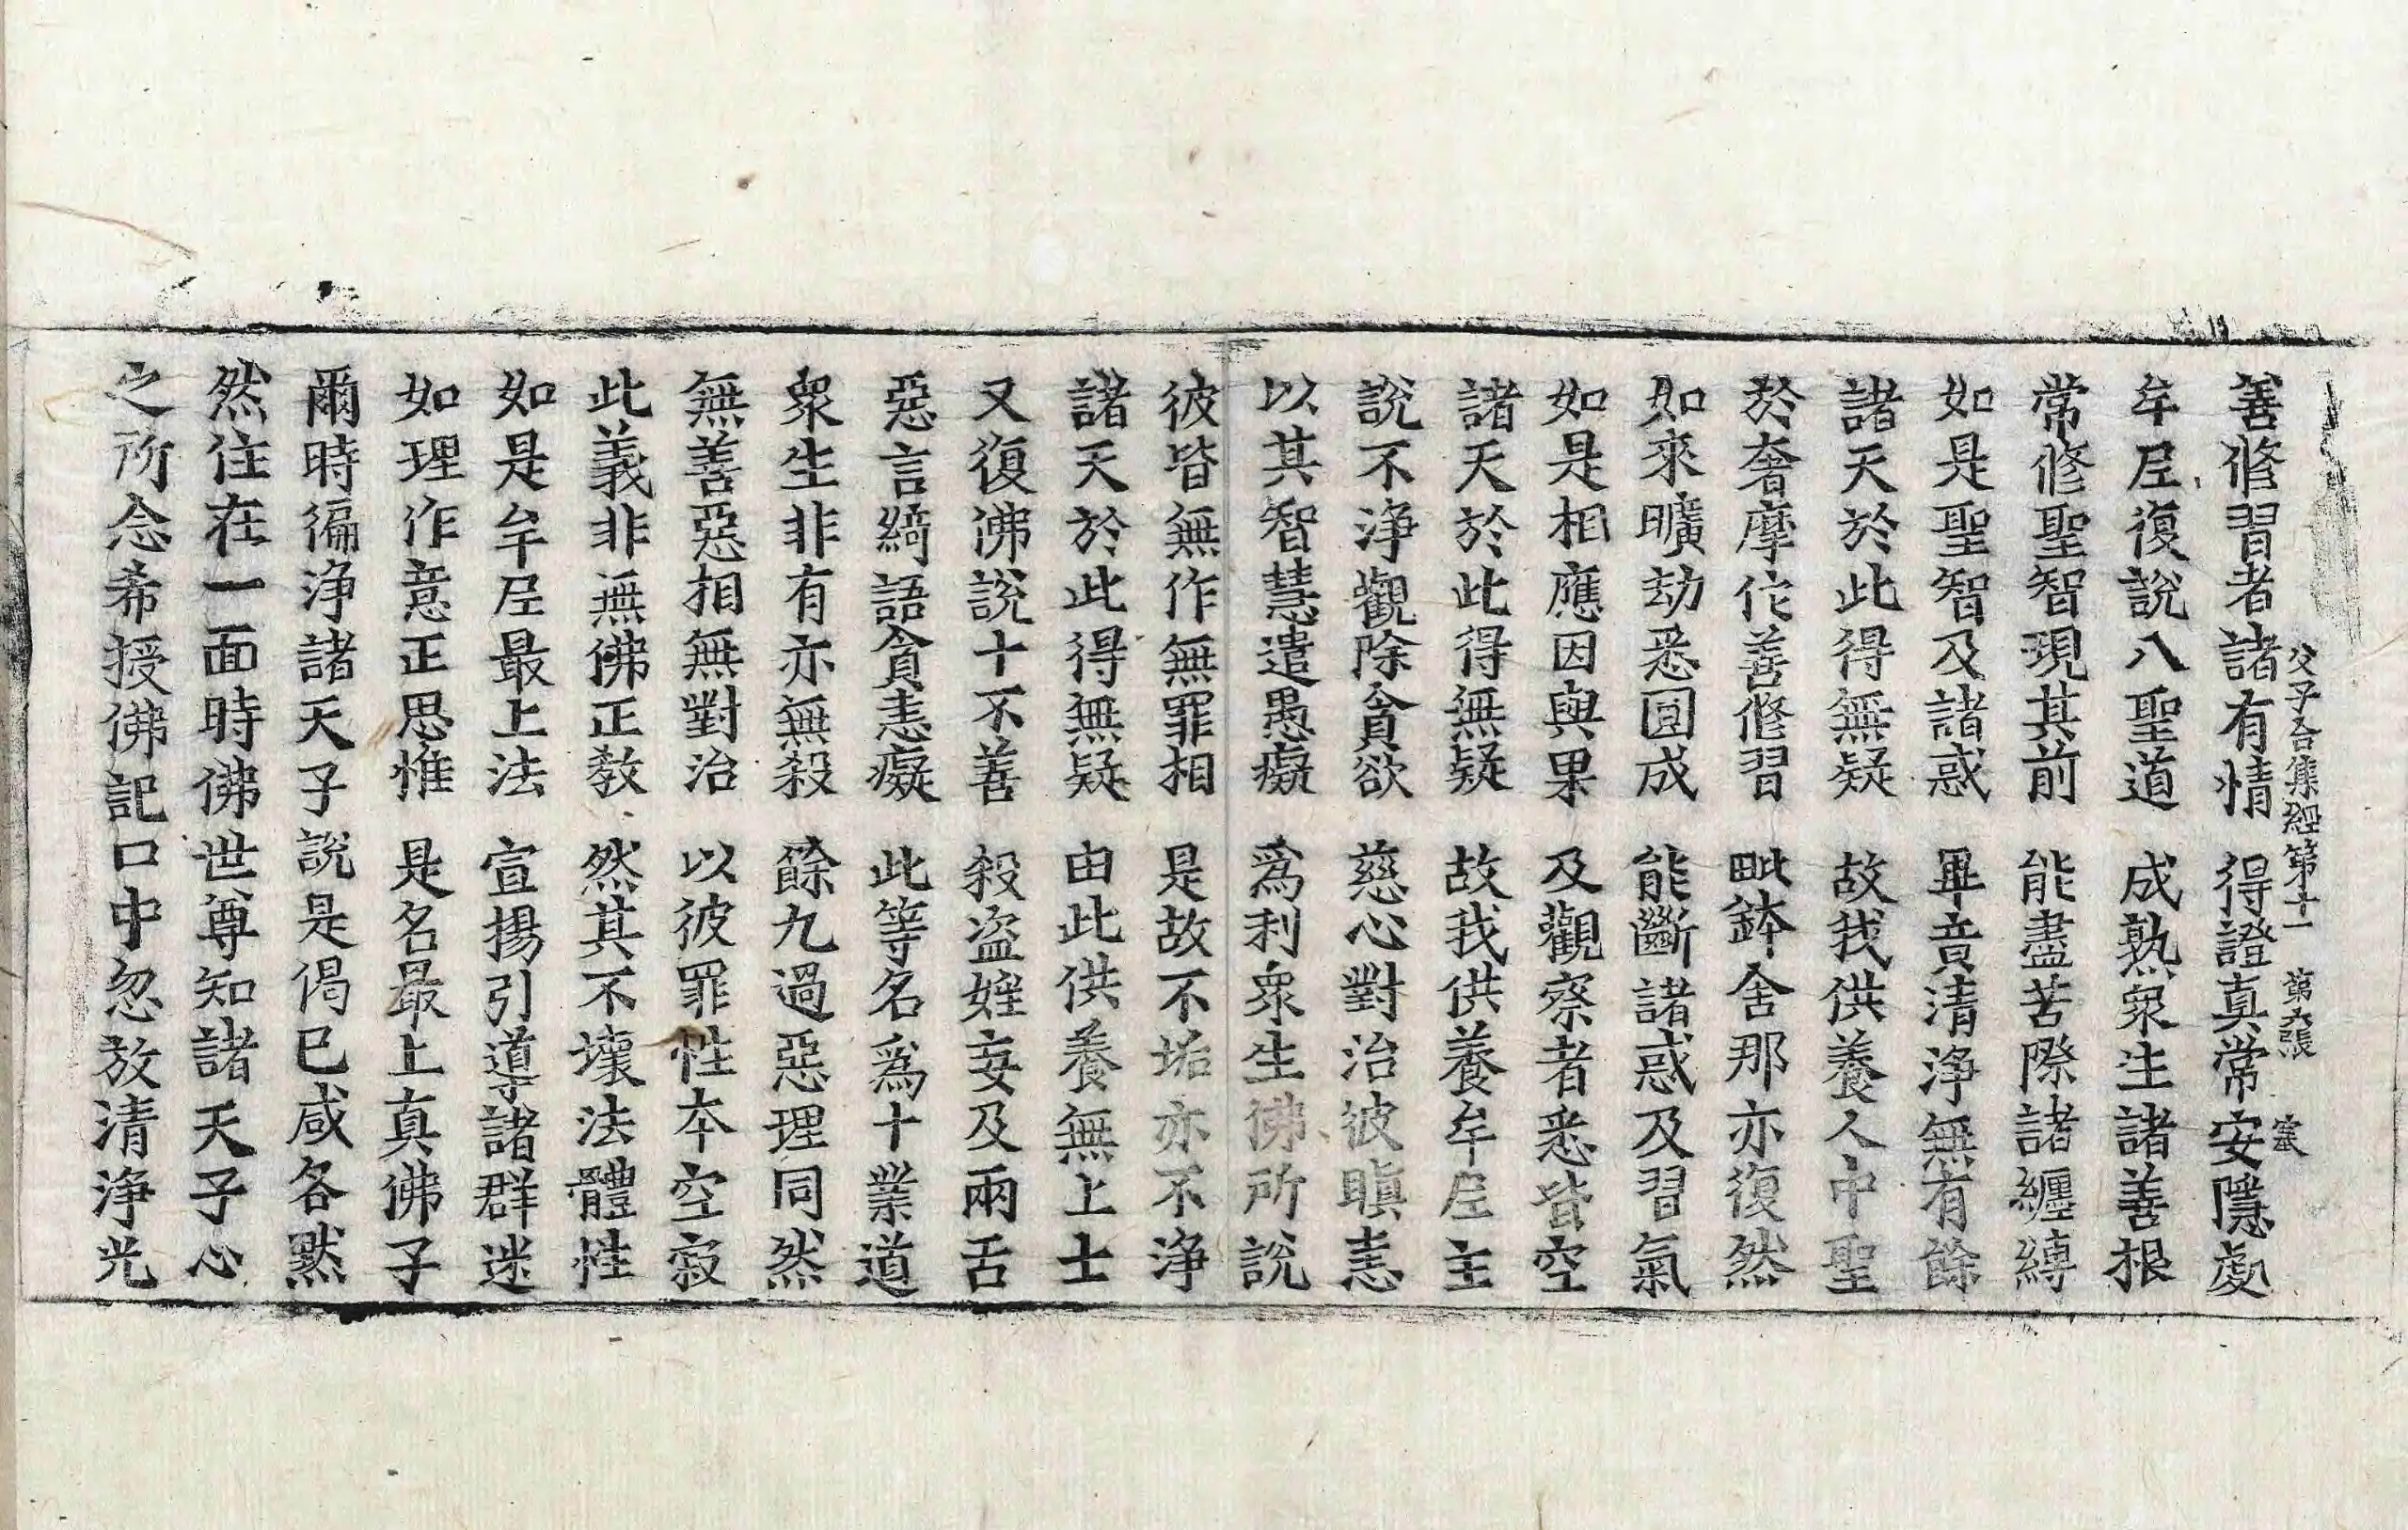 父子合集經第十一　第九張　寔
善修習者諸有情　得證真常安隱處
牟尼復說八聖道　成熟衆生諸善根
常修聖智現其前　能盡苦際諸纏縛
如是聖智及諸惑　畢竟清淨無有餘
諸天於此得無疑　故我供養人中聖
於奢摩佗善修習　毗鉢舍那亦復然
如來曠劫悉圓成　能斷諸惑及習氣
如是相應因與果　及觀察者悉皆空
諸天於此得無疑　故我供養牟尼主
說不淨觀除貪欲　慈心對治彼瞋恚
以其智慧遣愚癡　爲利衆生佛所說
彼皆無作無罪相　是故不垢亦不淨
諸天於此得無疑　由此供養無上士
又復佛說十不善　殺盜婬妄及兩舌
惡言綺語貪恚癡　此等名爲十業道
衆生非有亦無殺　餘九過惡理同然
無善惡相無對治　以彼罪性本空寂
此義非無佛正教　然其不壞法體性
如是牟尼最上法　宣揚引導諸群迷
如理作意正思惟　是名最上真佛子
爾時徧淨諸天子說是偈已咸各默
然住在一面時佛世尊知諸天子心
之所念希授佛記口中忽放清淨光